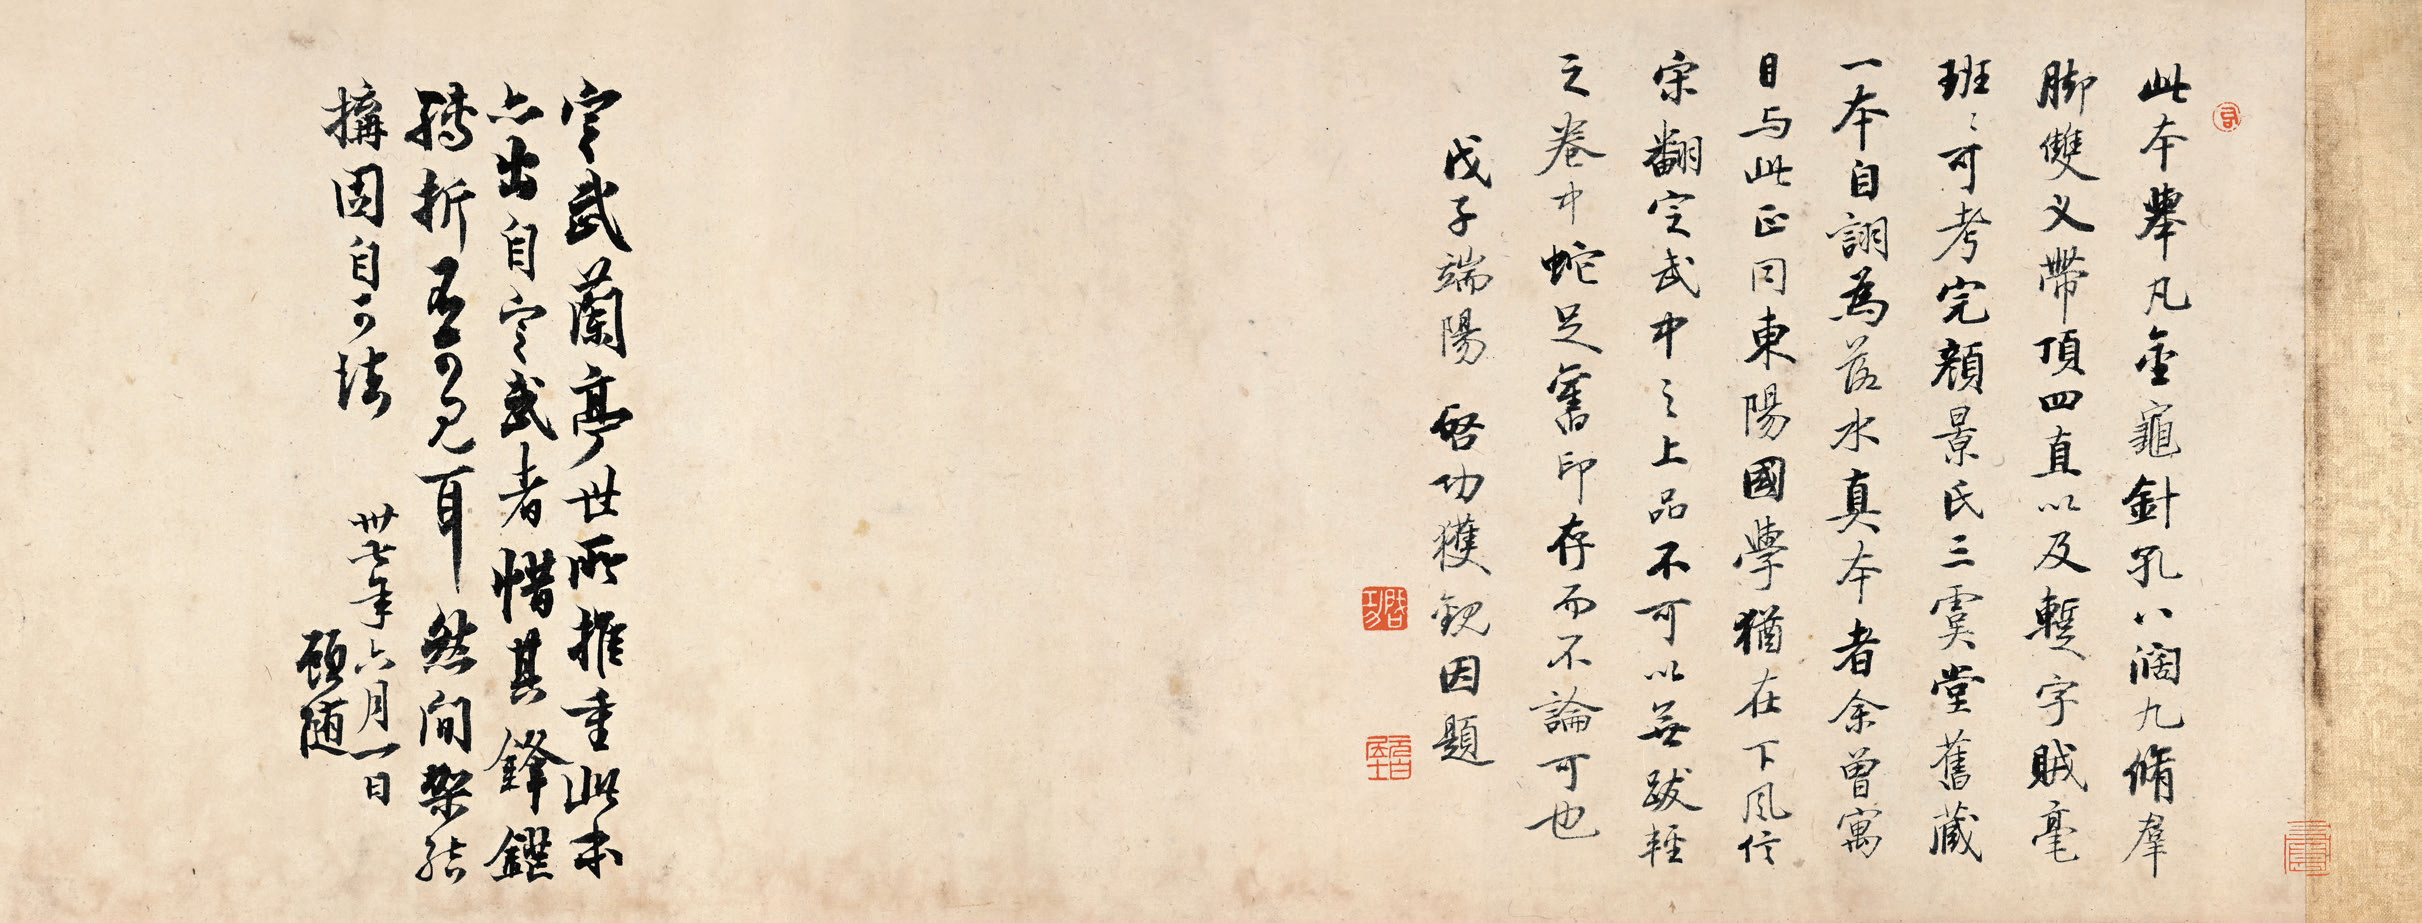 此本舉凡金龜針孔八闊九脩羣
脚雙乂帶頂四直以及蹔字賊毫
班〻可考完顏景氏三虞堂舊藏
一本自詡為落水真本者余曾寓
目与此正同東陽國學猶在下風信
宋翻定武中之上品不可以無跋輕
之卷中蛇足舊印存而不論可也
戊子端陽 啓功獲觀因題
定武蘭亭世所推重此本
亦出自定武者惜其鋒鋩
轉折一見耳然間架結
搆固自可法
卅七年六月一日
顧随
啓功
元白